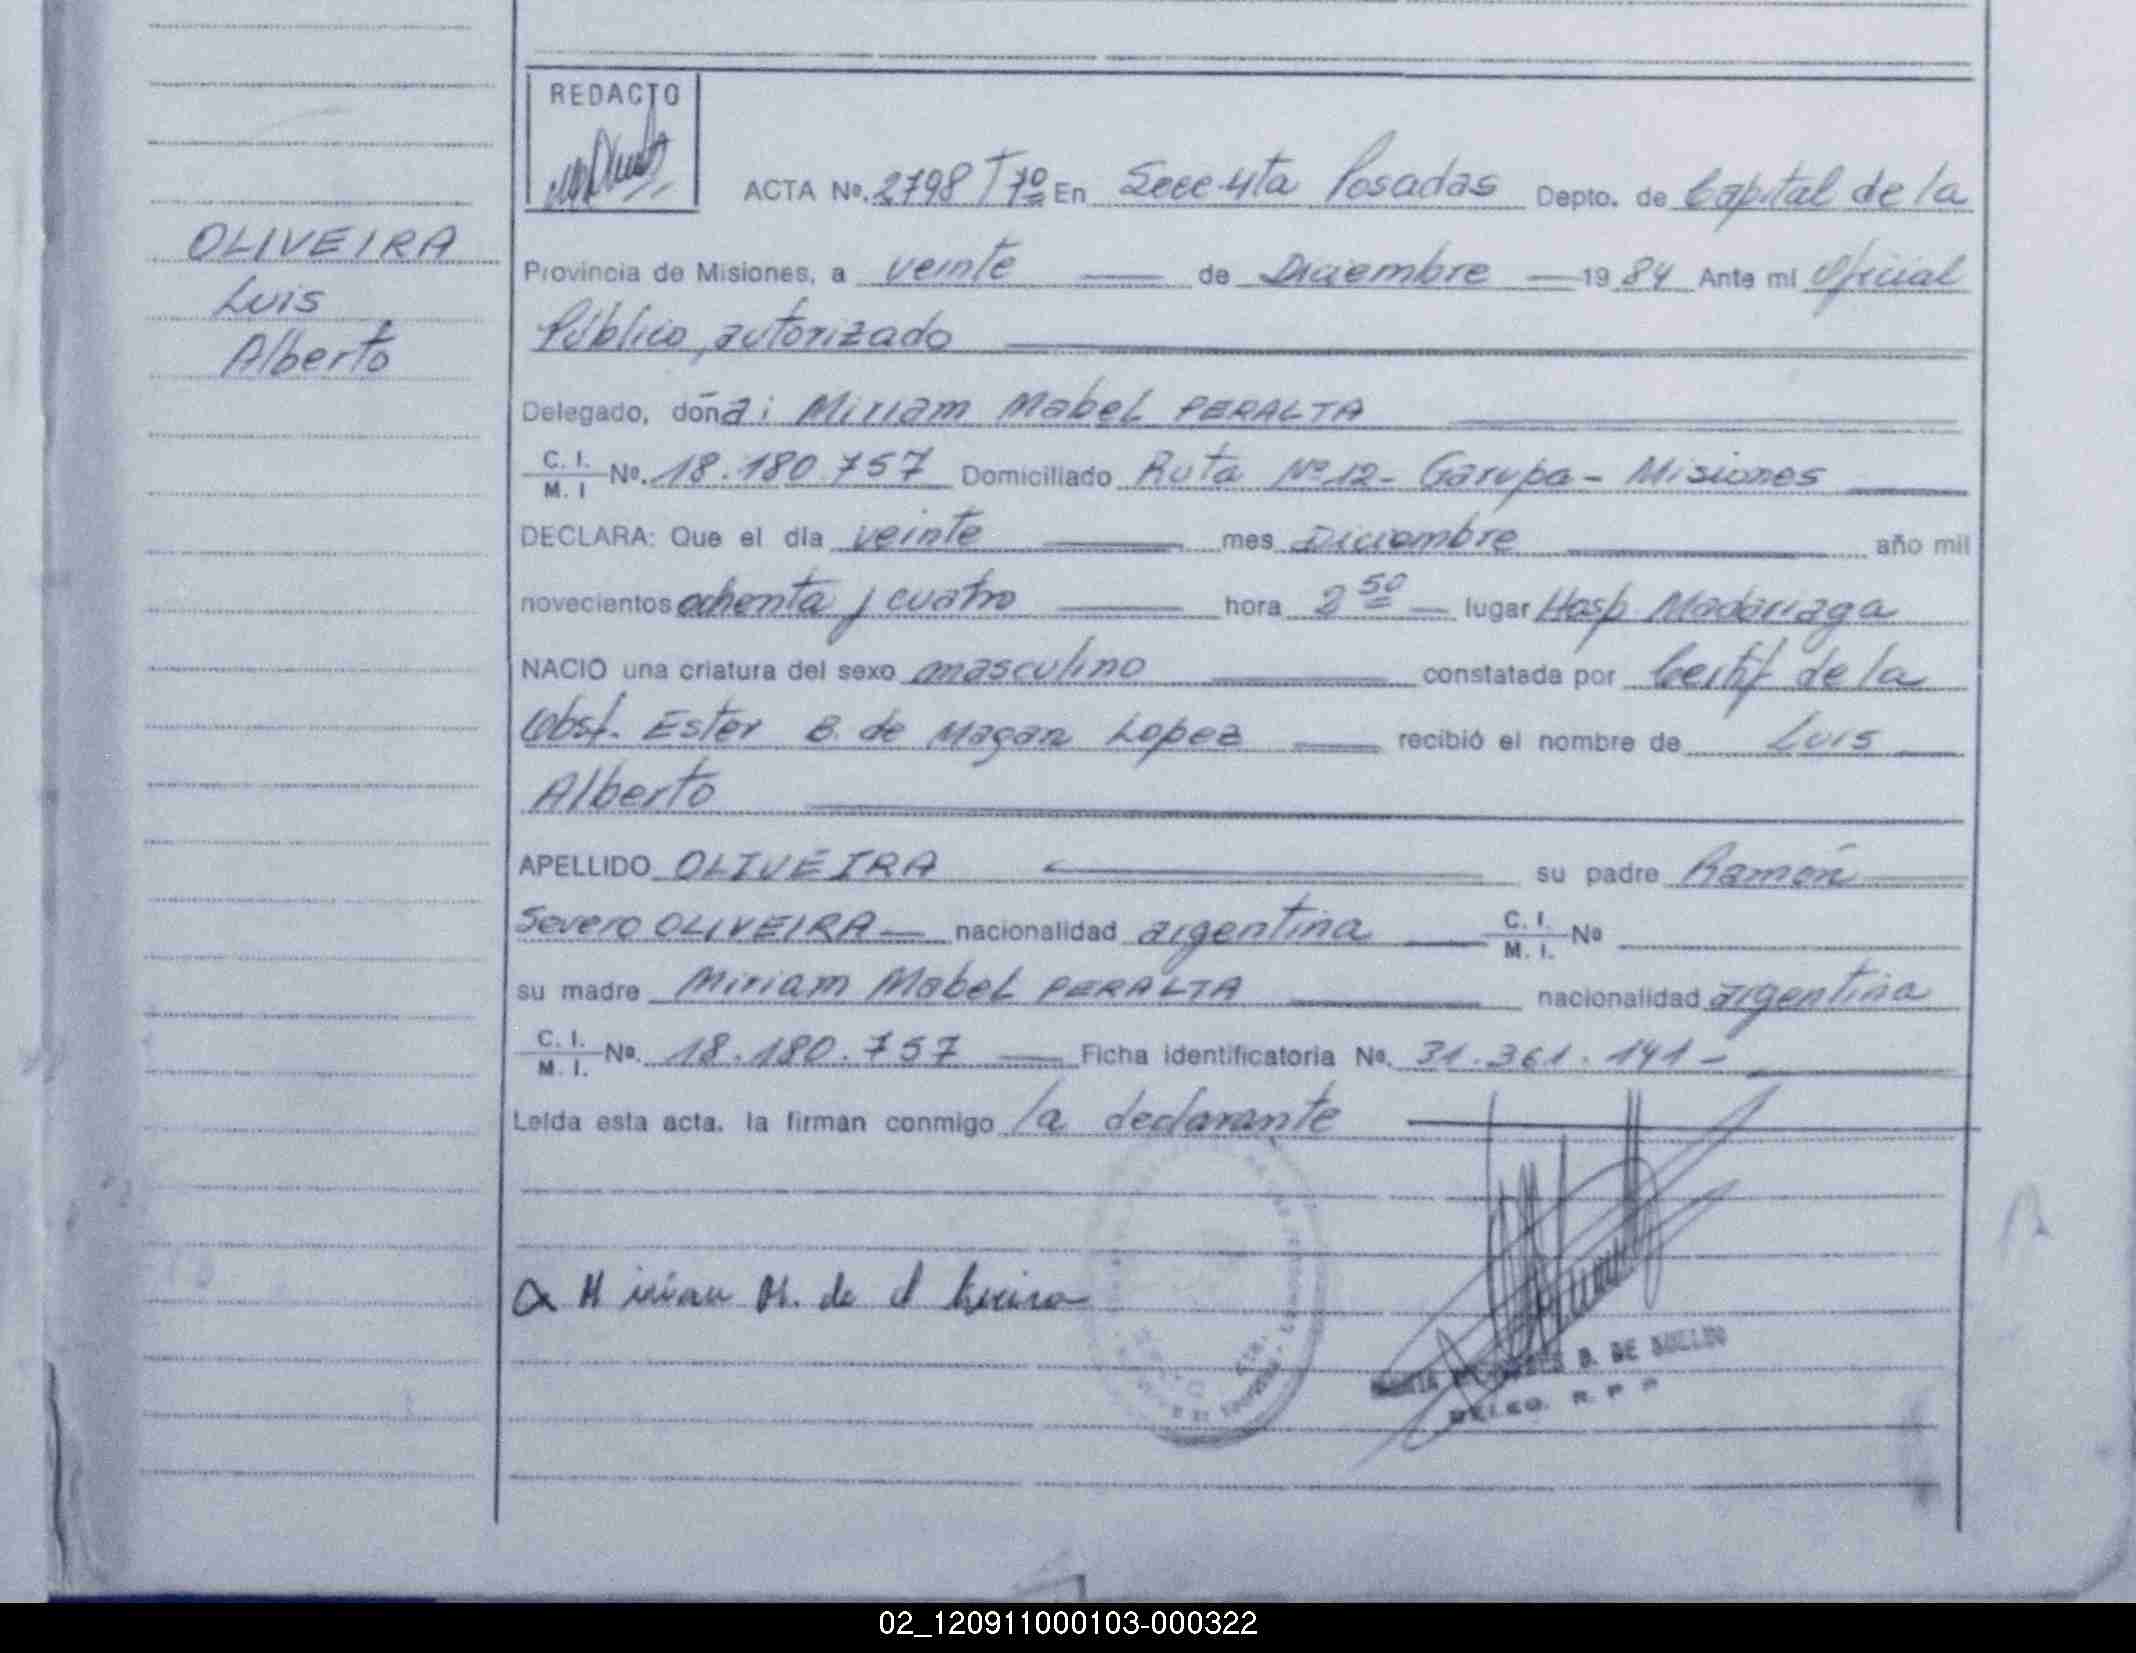 REDACTO
ACTA Nº. 2798 Tº 7º En Secc. 4ta Posadas Depto. de Capital de la
OLIVEIRA
Luis
Alberto
Provincia de Misiones, a veinte de Diciembre 1984 Ante mi Oficial
Público, autorizado
Delegado, doña: Miriam Mabel PERALTA
C. I. M. I Nº. 18.180.757 Domiciliado Ruta Nº 12 - Garupa - Misiones
DECLARA: Que el día veinte mes Diciembre año mil
novecientos ochenta y cuatro hora 2 50 lugar Hosp Madariaga
NACIO una criatura del sexo masculino constatada por Certif de la
Obst. Ester B. de Magan Lopez recibió el nombre de Luis
Alberto
APELLIDO OLIVEIRA su padre Ramón
Severo OLIVEIRA nacionalidad argentina C. I. M. I. Nº
su madre Miriam Mabel PERALTA nacionalidad argentina
C. I. M. I. Nº. 18.180.757 Ficha identificatoria Nº. 31.361.141-
Leída esta acta. la firman conmigo la declarante
B. DE
DELEG. R. P. P
02_120911000103-000322